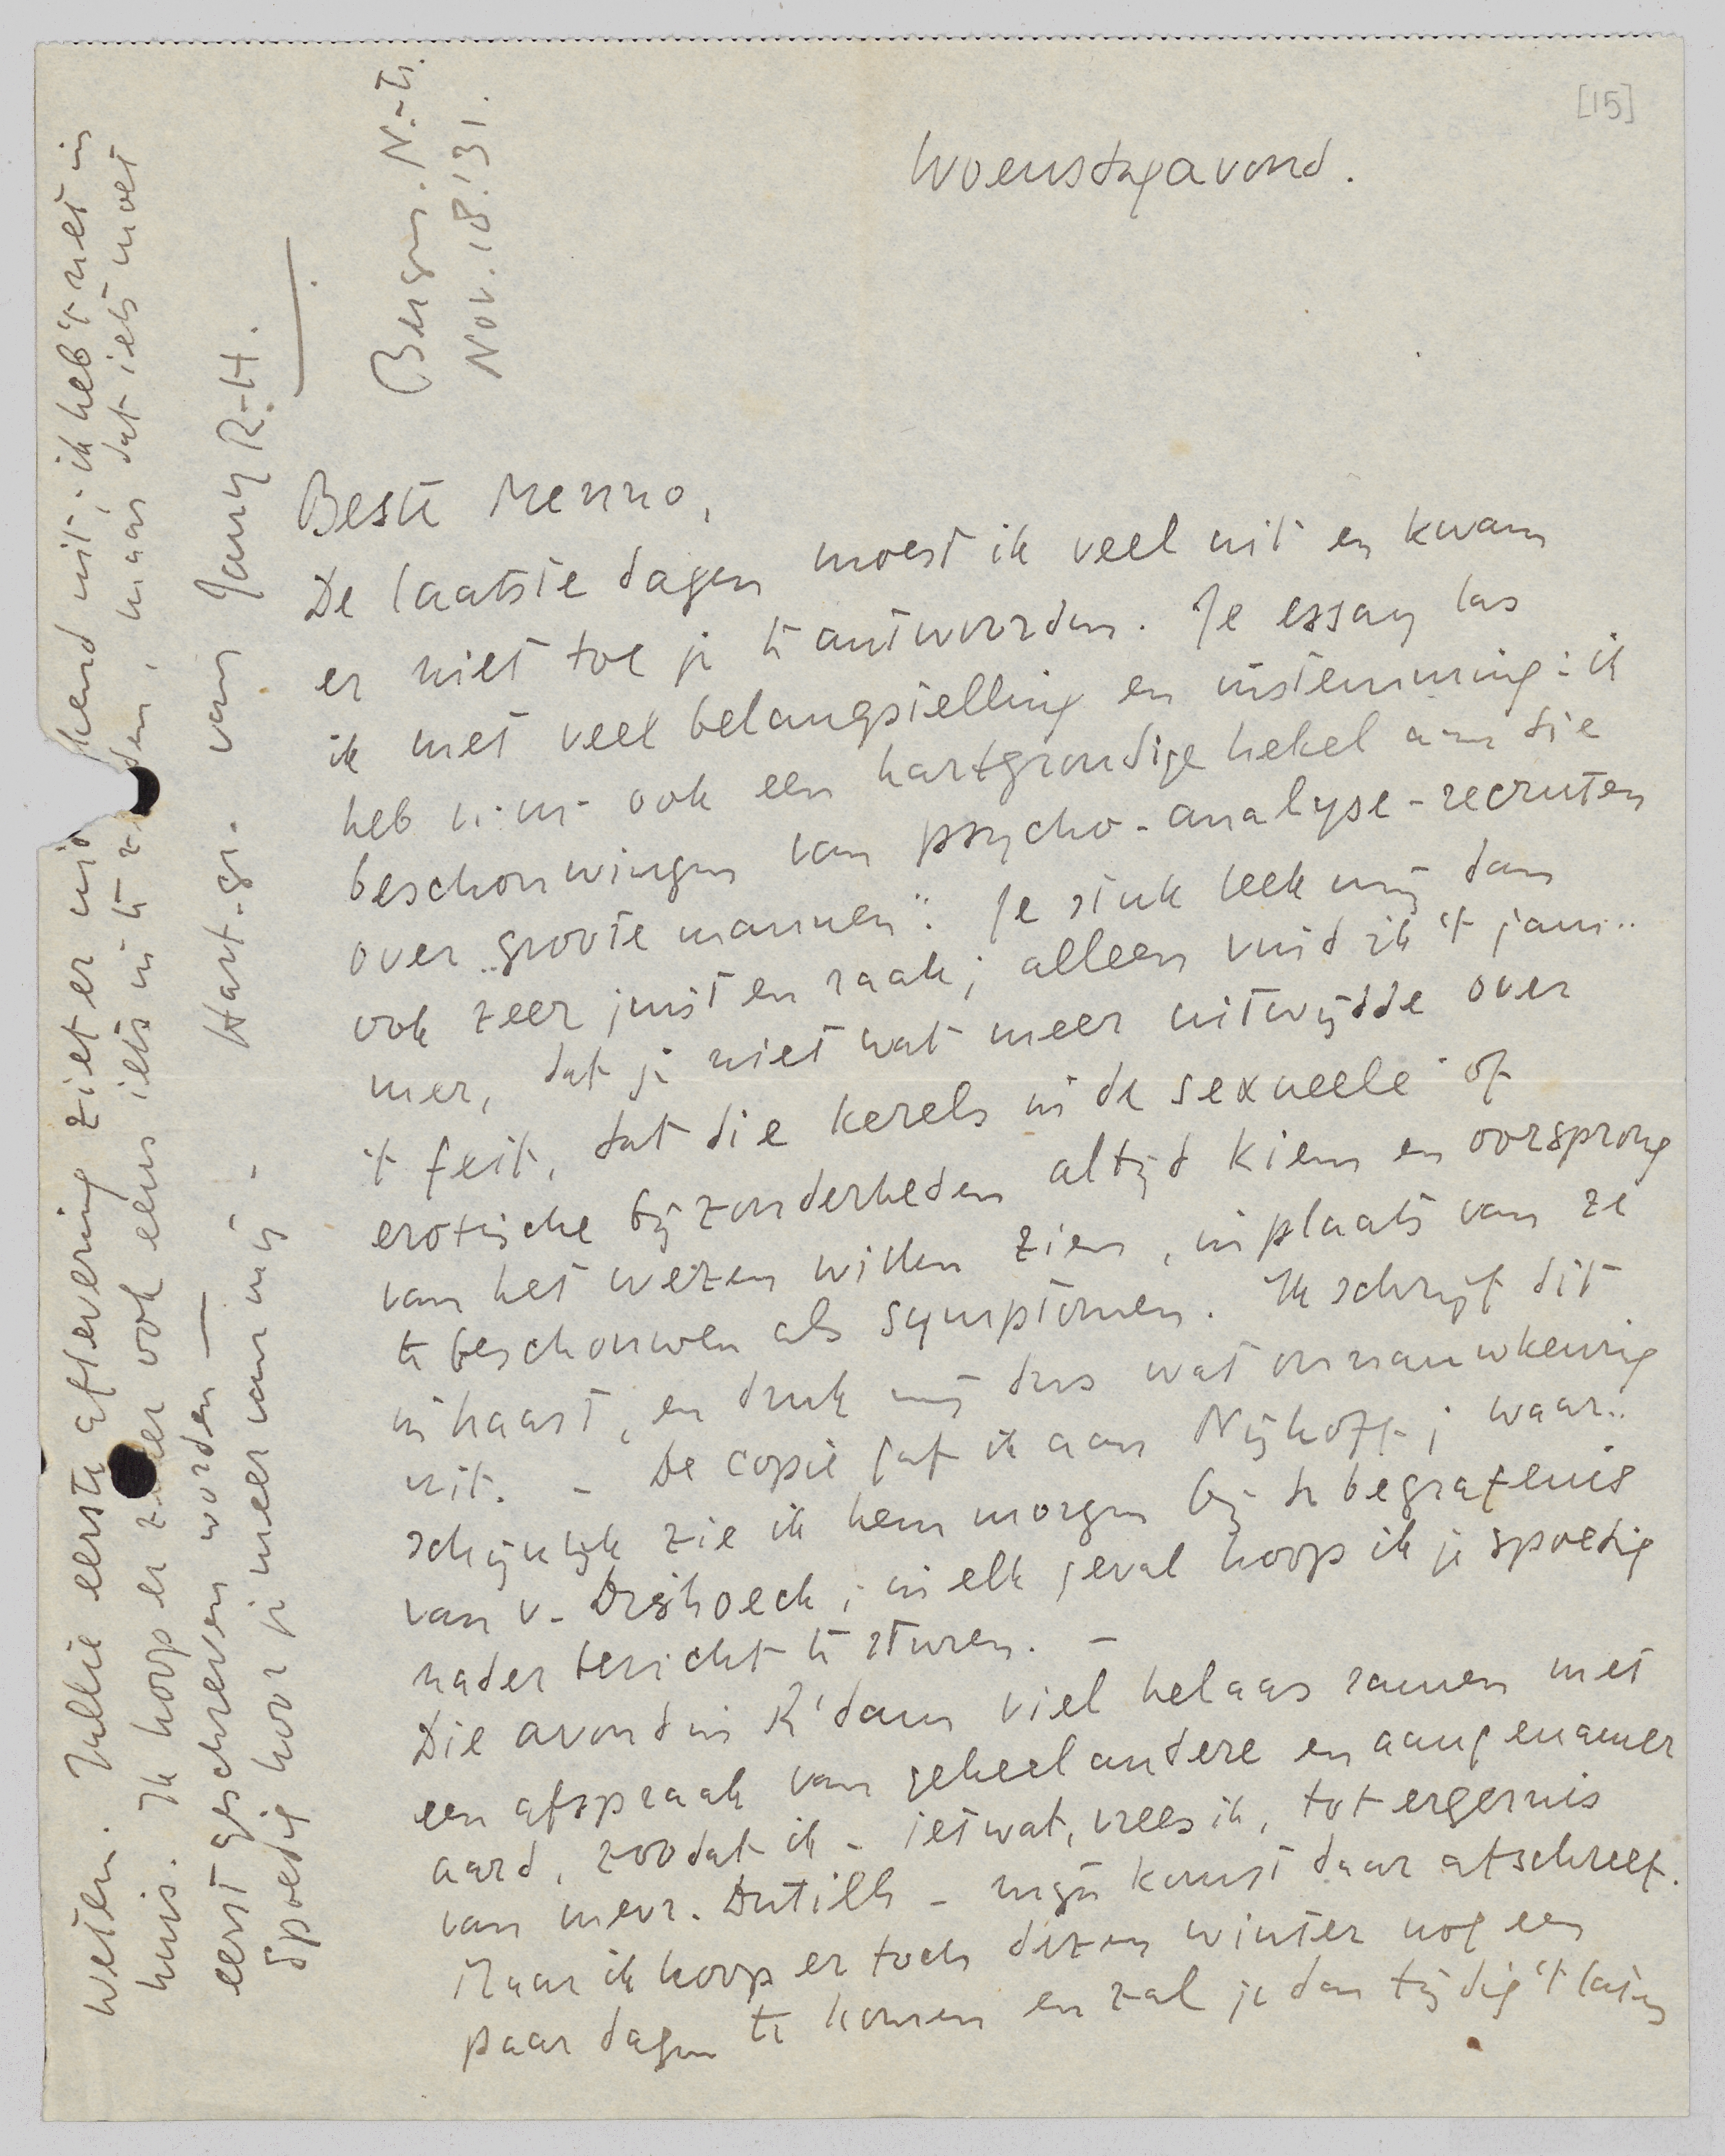 [15]
Woensdagavond.
Bergen. N.-H.
Nov. 18.'31.
Beste Menno,
De laatste dagen moest ik veel uit en kwam
er niet toe je te antwoorden. Je essay las
ik met veel belangstelling en instemming: ik
heb n.m. ook een hartgrondige hekel aan die
beschouwingen van psycho-analyse-recruten
over „groote mannen". Je stuk leek mij dan
ook zeer juist en raak; alleen vind ik 't jam-
mer, dat je niet wat meer uitwijdde over
't feit, dat die kerels in de sexueele of
erotische bijzonderheden altijd kiem en oorsprong
van het wezen willen zien, in plaats van ze
te beschouwen als symptomen. Ik schrijf dit
in haast, en druk mij dus wat onnauwkeurig
uit. - De copie gaf ik aan Nijhoff; waar-
schijnlijk zie ik hem morgen bij de begrafenis
van v. Dishoeck; in elk geval hoop ik je spoedig
nader bericht te sturen. -
Die avond in R'dam viel helaas samen met
een afspraak van geheel andere en aangenamer
aard, zoodat ik - ietwat, vrees ik, tot ergernis
van mevr. Dutilh - mijn komst daar afschreef.
Maar ik hoop er toch dezen winter nog een
paar dagen te komen en zal je dan tijdig 't laten
weten. Jullie eerste aflevering ziet er uit; ik heb 't met in
huis. Ik hoop er ook eens iets in te, maar dat iets moet
eerst geschreven worden —
Spoedig hoor je meer van mij.-
Hart. gr. van Jany R.-H.